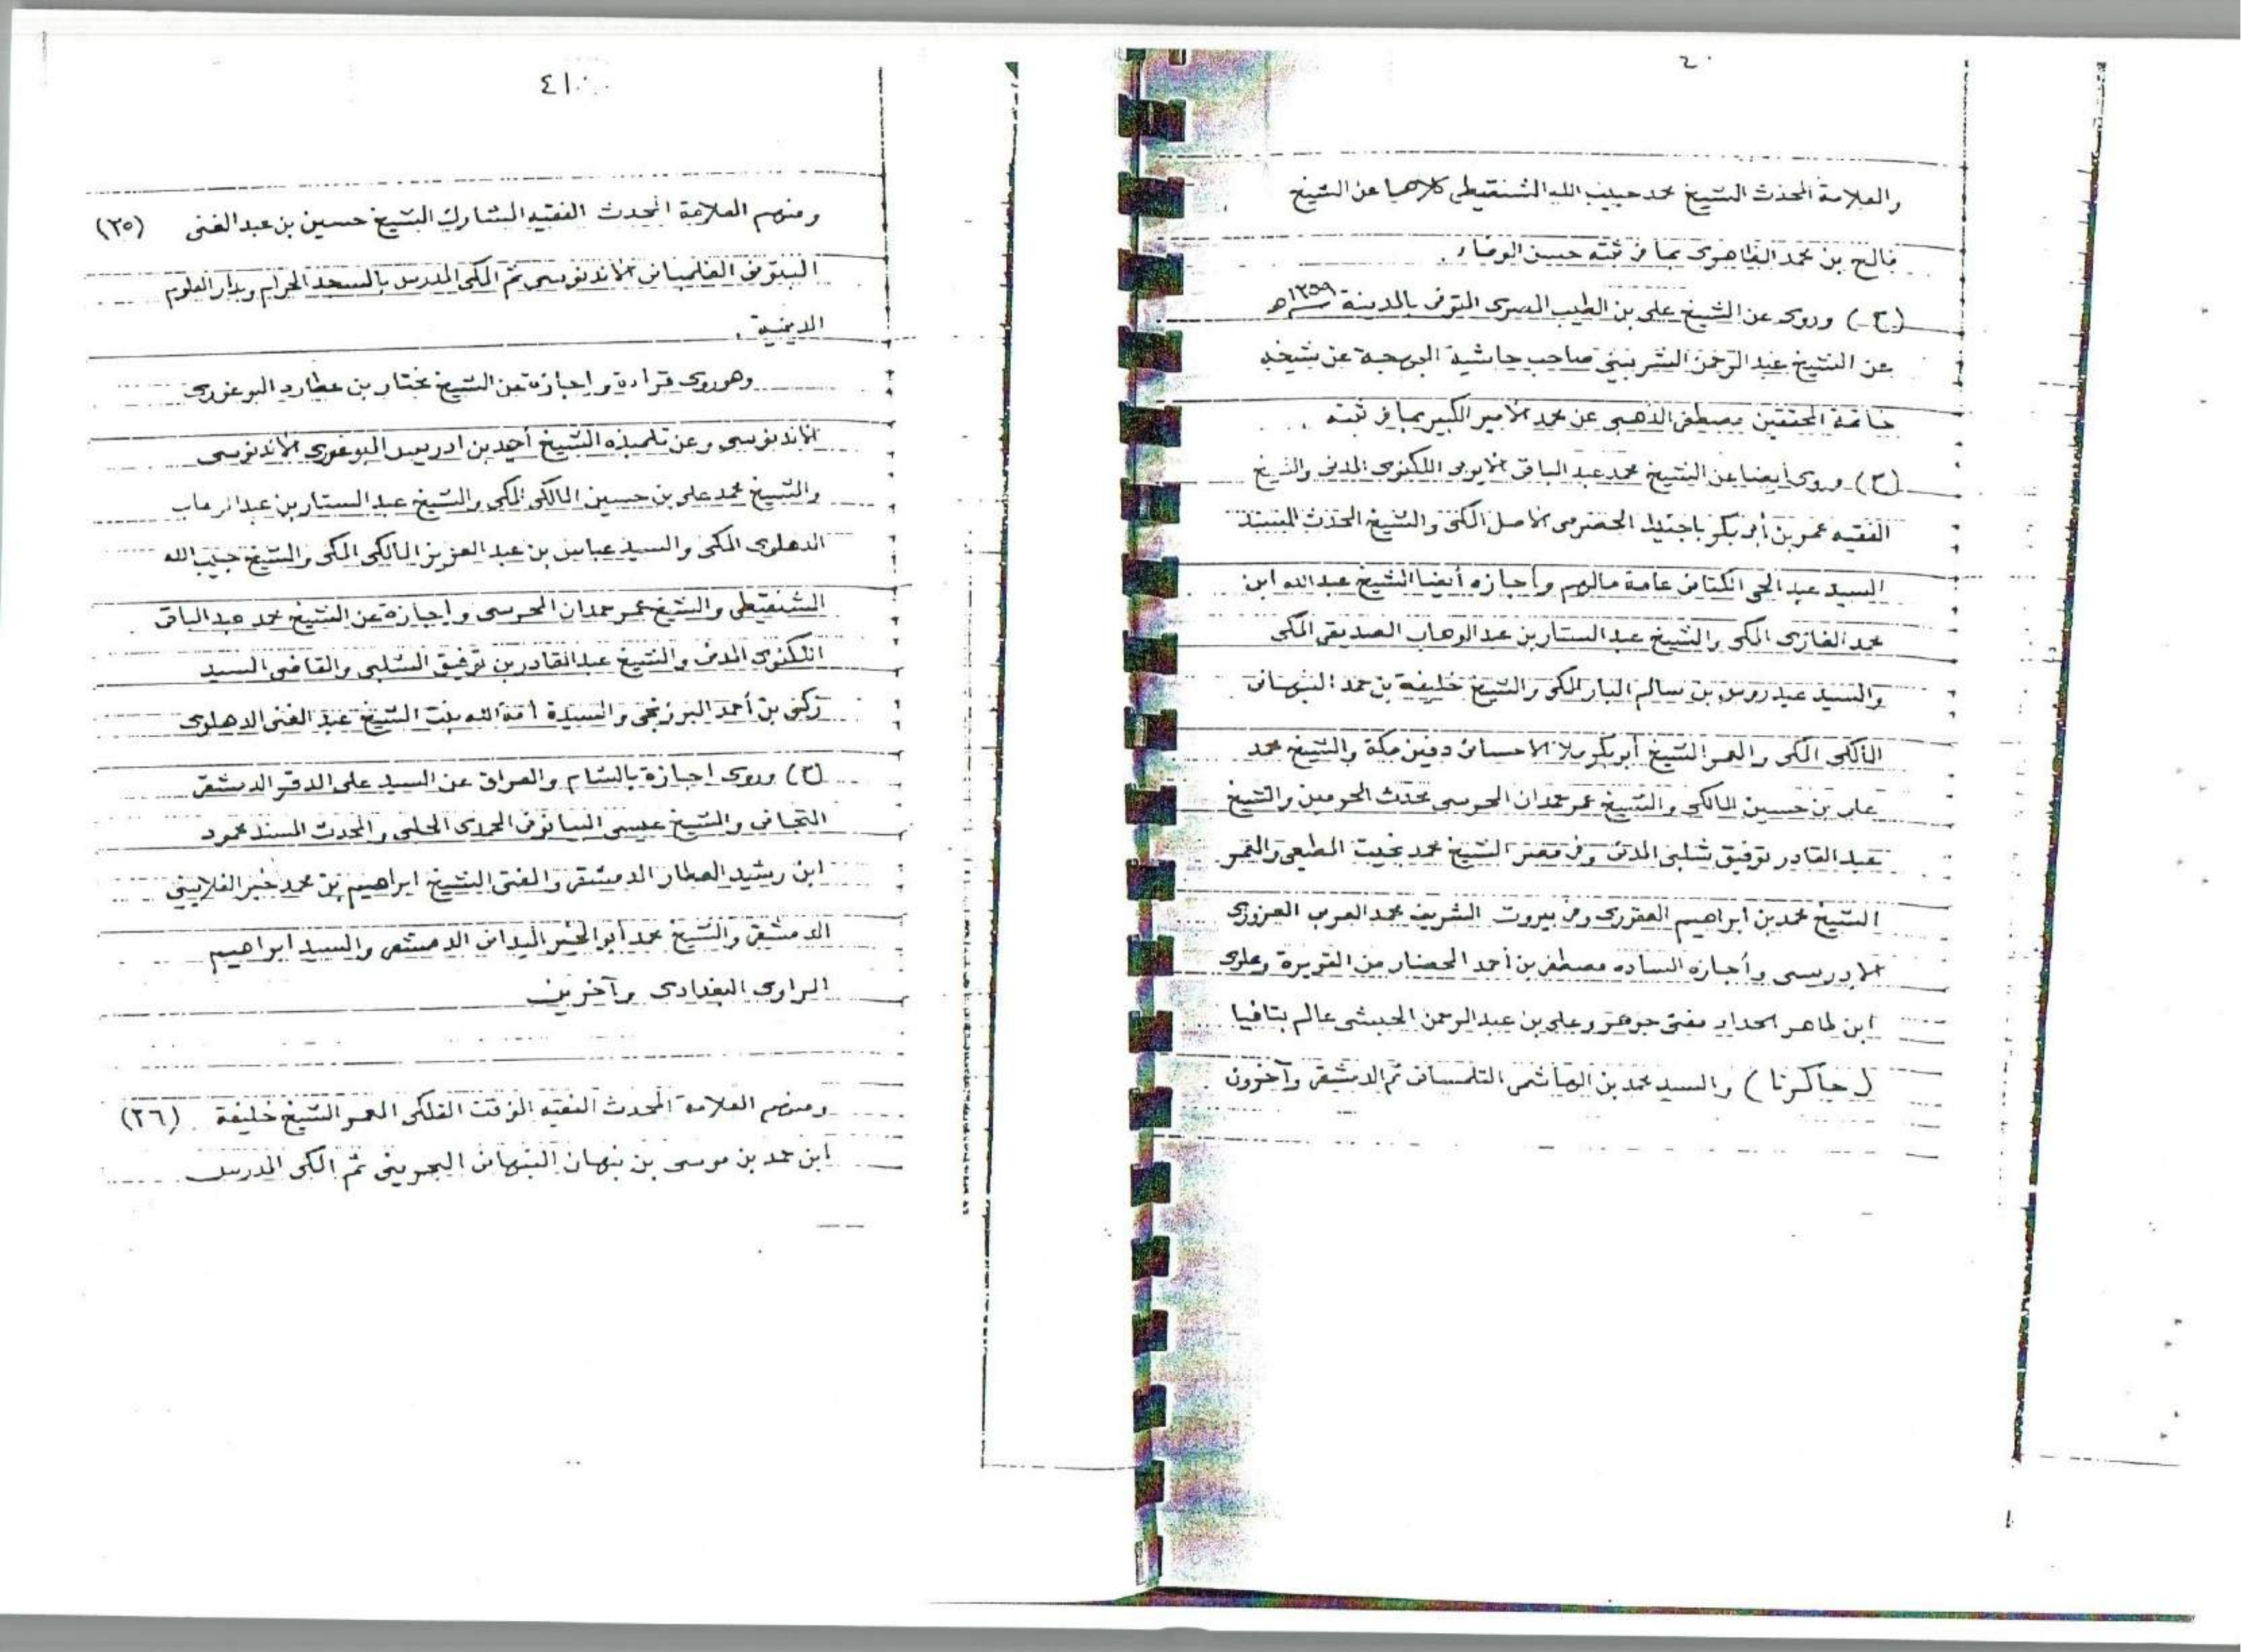 ٤٠
والعلامة المحدث الشيخ محمد حبيب الله الشنقيطى كلاهما عن الشيخ
فالح بن محمد الظاهرى بما فى ثبته حسن الوفاء .
(ح) وروى عن الشيخ على بن الطيب المصرى المتوفى بالمدينة ١٣٥٩ هـ
عن الشيخ عبد الرحمن الشربينى صاحب حاشية البهجة عن شيخه
خاتمة المحققين مصطفى الذهبى عن محمد الأمير الكبير بما فى ثبته .
(ح) وروى أيضا عن الشيخ محمد عبد الباقى الأيوبى اللكنوى المدنى والشيخ
الفقيه عمر بن أبى بكر باجنيد الحضرمى الأصل المكى والشيخ المحدث المسند
السيد عبد الحى الكتانى عامة مالهم وأجازه أيضا الشيخ عبد الله ابن
محمد الغازى المكى والشيخ عبد الستار بن عبد الوهاب الصديقى المكى
والسيد عيدروس بن سالم البار المكى والشيخ خليفة بن حمد النبهانى
المالكى المكى والمعمر الشيخ أبو بكر ملا الاحسائى دفين مكة والشيخ محمد
على بن حسين المالكى والشيخ عمر حمدان المحرسى محدث الحرمين والشيخ
عبد القادر توفيق شلبى المدنى وفى مصر الشيخ محمد بخيت المطيعى والمعمر
الشيخ محمد بن ابراهيم العقورى وفى بيروت الشريف محمد العربى العزوزى
الادريسى وأجازه الساده مصطفى بن أحمد المحضار من القويرة وعلوى
ابن طاهر الحداد مفتى جوهر وعلى بن عبد الرحمن الحبشى عالم بتافيا
( جاكرتا ) والسيد محمد بن الهاشمى التلمسانى ثم الدمشقى وآخرون .
٤١
ومنهم العلامة المحدث الفقيه المشارك الشيخ حسين بن عبد الغنى (٣٥)
الفلمبانى الأندنوسى ثم المكى المدرس بالمسجد الحرام وبدار العلوم
الدينية .
وهو روى قراءة واجازة عن الشيخ مختار بن عطارد البوغورى
الأندنوسى وعن تلميذه الشيخ أحمد بن ادريس البوغورى الأندنوسى
والشيخ محمد على بن حسين المالكى المكى والشيخ عبد الستار بن عبد الوهاب
الدهلوى المكى والسيد عباس بن عبد العزيز المالكى المكى والشيخ حبيب الله
الشنقيطى والشيخ عمر حمدان المحرسى واجازة عن الشيخ محمد عبد الباقى
اللكنوى المدنى والشيخ عبد القادر بن توفيق الشلبى والقاضى السيد
زكى بن أحمد البرزنجى والسيدة أمة الله بنت الشيخ عبد الغنى الدهلوى
(ح) وروى اجازة بالشام والعراق عن السيد على الدقر الدمشقى
التجانى والشيخ عيسى البيانونى المحمدى الحلبى والمحدث المسند محمود
ابن رشيد العطار الدمشقى والمفتى الشيخ ابراهيم بن محمد خير الغلايينى
الدمشقى والشيخ محمد أبو الخير الميدانى الدمشقى والسيد ابراهيم
الراوى البغدادى وآخرين
ومنهم العلامة المحدث الفقيه الفلكى المعمر الشيخ خليفة (٣٦)
ابن حمد بن موسى بن نبهان النبهانى البحرينى ثم المكى المدرس